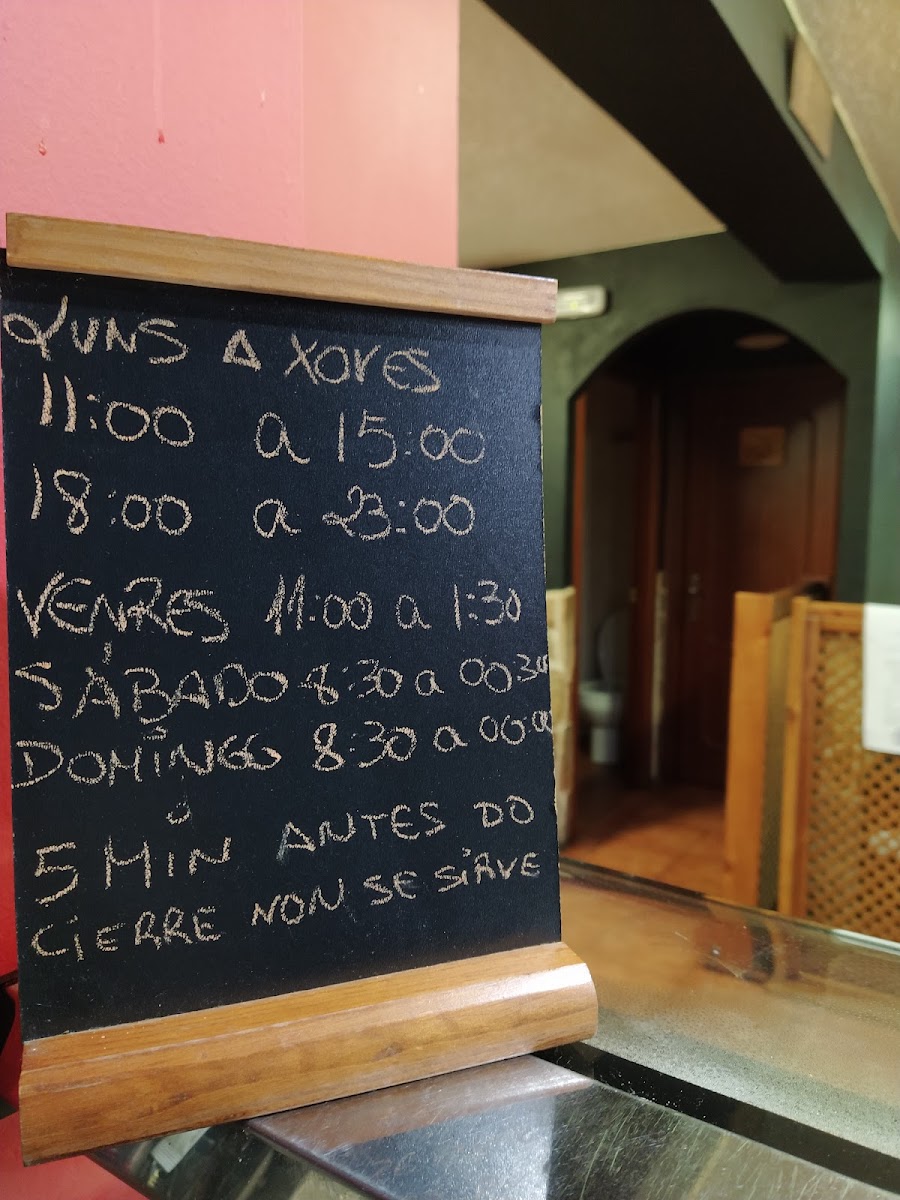 LUNS A XOVES
11:00 a 15:00
18:00 a 23:00
VENRES 11:00 a 1:30
SÁBADO 8:30 a 00:30
DOMINGO 8:30 a 00:00
5 MIN ANTES DO
CIERRE NON SE SIRVE